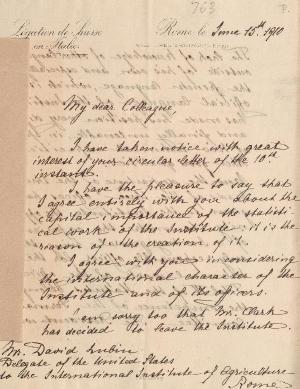 763
P.
Légation de Suisse
en Italie.
Rome, le June 15th 1910
My dear Colleague,
I have taken notice with great
interest of your circular letter of the 10th
instant.
I have the pleasure to say that
I agree entirely with you about the
capital importance of the statisti-
cal work of the Institute: it is the
reason of the creation of it.
I agree with you in considering
the international character of the
Institute and of its officers.
I am sorry too that Mr. Clark
has decided to leave the Institute.
Mr. David Lubin
Delegate of the United States
to the International Institute of Agriculture
Rome